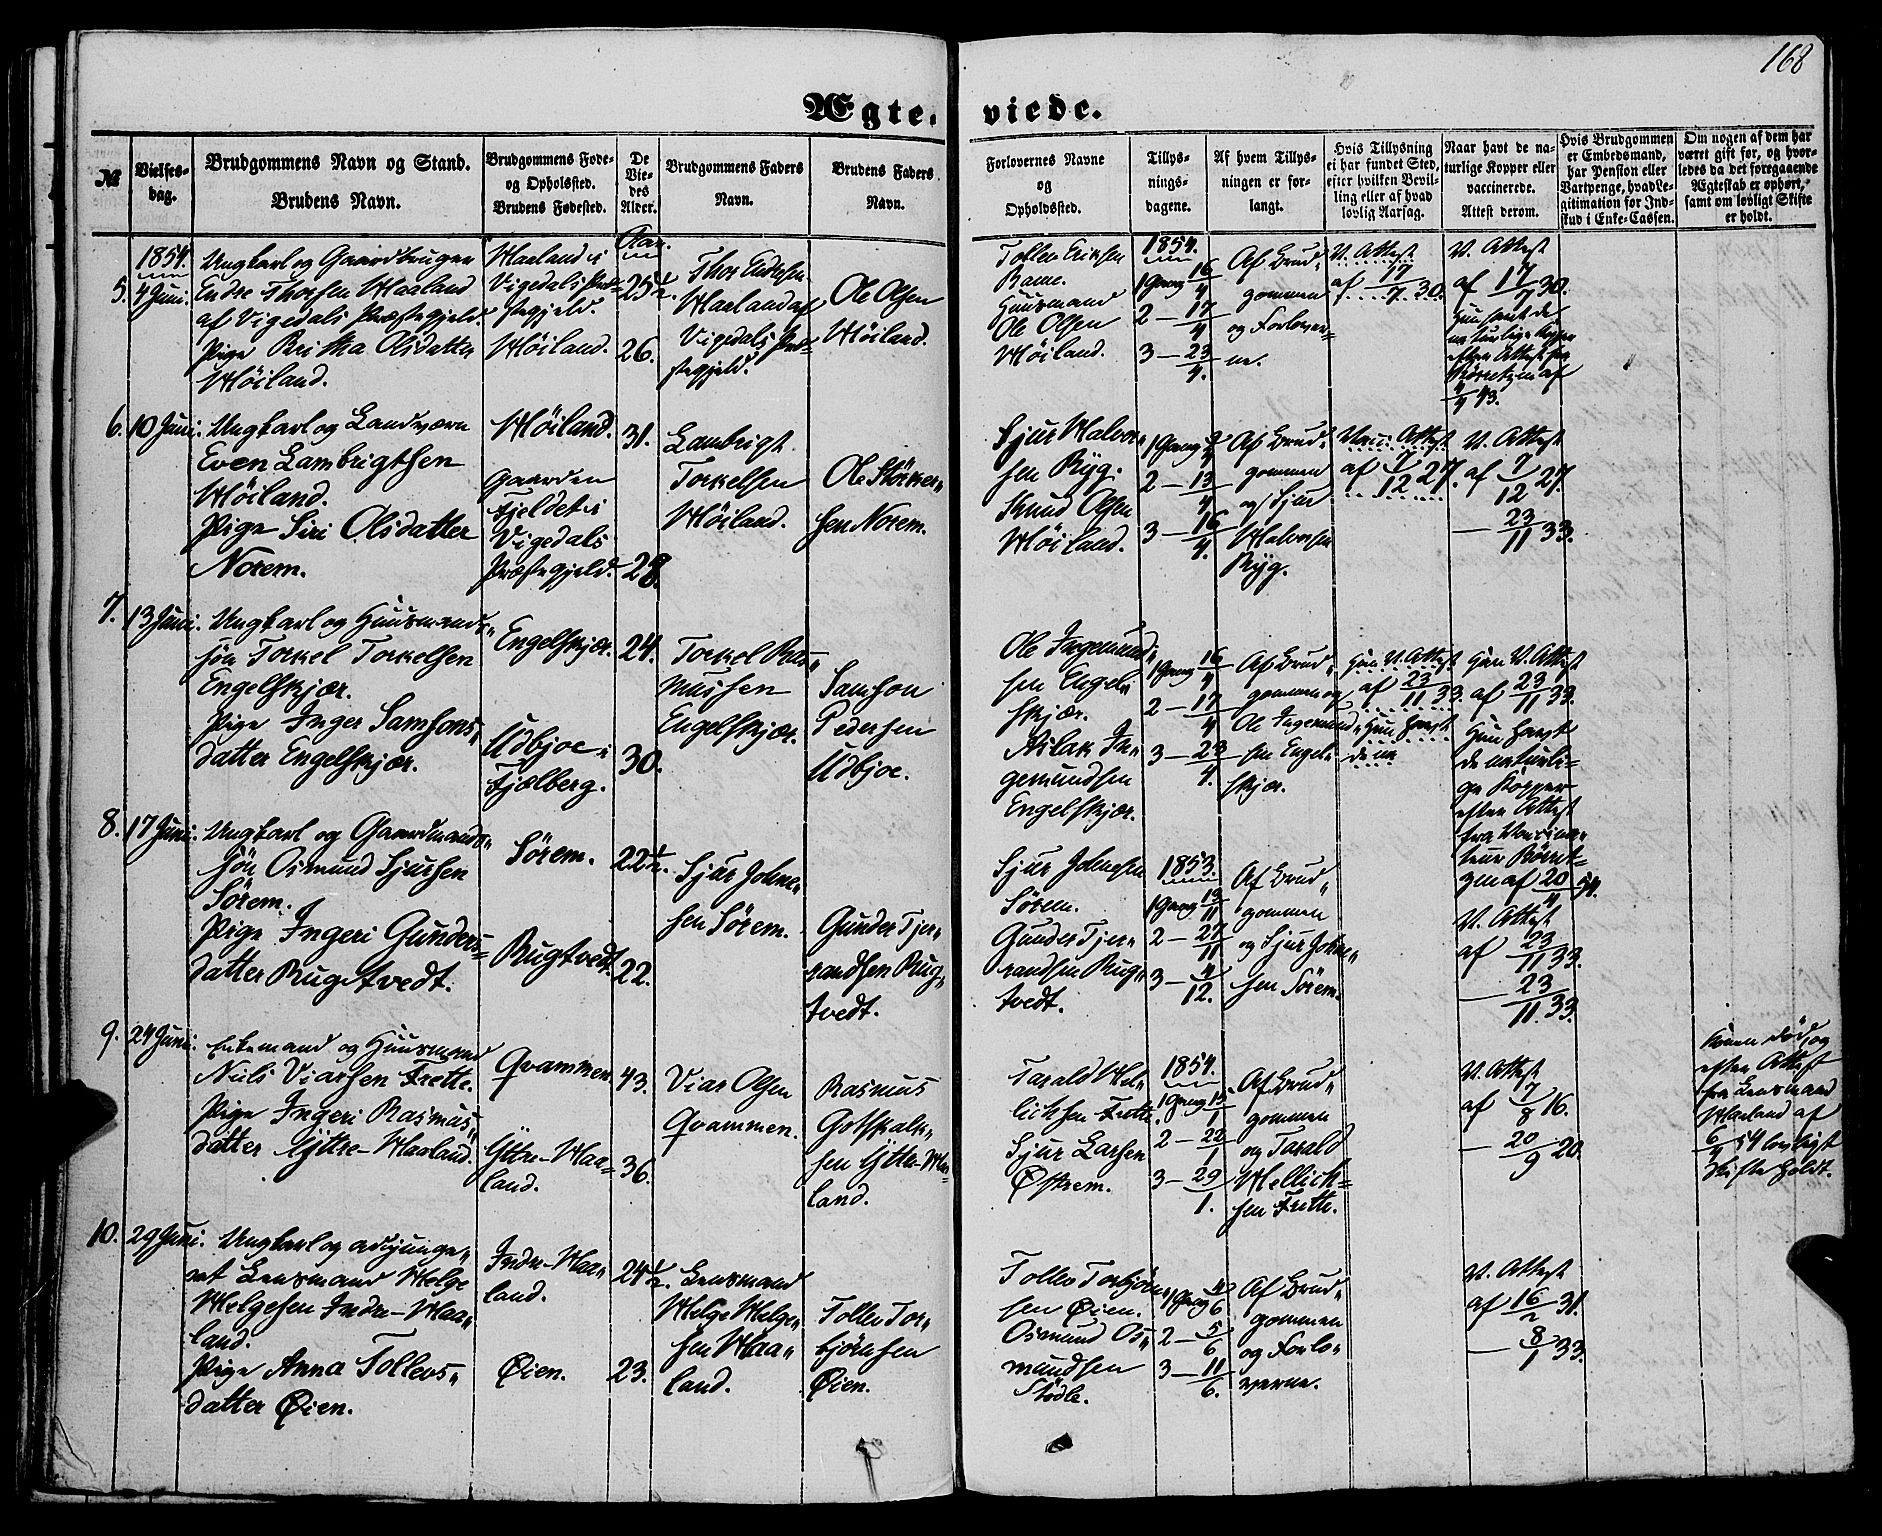 168
Ægteviede.
№
Vielses-
dag.
Brudgommens Navn og Stand.
Brudens Navn.
Brudgommens Føde-
og Opholdssted.
Brudens Fødested.
De
Vie-
des
Alder.
Brudgommens Faders
Navn.
Brudens Faders
Navn.
Forlovernes Navne
og
Opholdssted.
Tillys-
nings-
dagene.
Af hvem Tillys-
ningen er for-
langt.
Hvis Tillysning
ei har fundet Sted,
efter hvilken Bevil-
ling eller af hvad
lovlig Aarsag.
Naar havt de na-
turlige Kopper eller
vaccinerede.
Attest derom.
Hvis Brudgommen
er Embedsmand,
har Pension eller
Vartpenge, hvad Le-
gitimation for Ind-
skud i Enke-Cassen.
Om nogen af dem har
været gift før, og hvor-
ledes da det foregaaende
Ægteskab er ophørt,
samt om lovligt Skifte
er holdt.
1854.
5. 4 Juni.
Ungkarl og Gaardbruger
Endre Thorsen Haaland
af Vigedals Præstegjeld.
Pige Britha Olsdatter
Høiland.
Haaland i
Vigedals Præ-
stegjeld.
Høiland.
Aar.
25½.
26.
Thor Endresen
Haaland af
Vigedals Præ-
stegjeld.
Ole Olsen
Høiland.
Tollev Eriksen
Huusmand
Ole Olsen
Høiland.
1854.
1 Gang 16/4
2 — 17/4
3 — 23/4.
Af Brud-
gommen
og Forlover-
ne.
V. Attest
af 17/7 30.
V. Attest
af 17/7 30.
Hun havt de
naturlige Kopper
efter Attest fra
6. 10 Juni.
Ungkarl og Landværn
Even Lambrigtsen
Høiland.
Pige Siri Olsdatter
Norem.
Høiland.
Gaarden
Fjeldet i
Vigedals
Præstegjeld.
31.
28.
Lambrigt
Torkelsen
Høiland.
Ole Størker-
sen Norem.
Sjur Halvor-
sen Ryg.
Knud Olsen
Høiland.
1 Gang
2 — 13/4
3 — 16/4.
Af Brud-
gommen
og Sjur
Halvorsen
Ryg.
Attest
af 7/12 27.
V. Attest
af 7/12 27.
— 23/11 33.
7. 13 Juni.
Ungkarl og Huusmands-
søn Torkel Torkelsen
Engelskjær.
Pige Inger Samsons-
datter Engelskjær.
Engelskjær.
Udbjoe-
Fjælberg.
24.
30.
Torkel Ras-
mussen
Engelskjær.
Samson
Pedersen
Udbjoe.
Ole Ingemund-
sen Engel-
skjær.
Aslak In-
gemundsen
Engelskjær.
1 Gang 16/4
2 — 17/4
3 — 23/4.
Af Brud-
gommen og
Ole Ingemund-
sen Engel-
skjær.
Han V. Attest
af 23/11 33.
Hun havt
de na
Han V. Attest
af 23/11 33.
Hun havt
de naturli-
ge Kopper
efter Attest
fra Vaccina-
teur
af 20/4 54.
8. 17 Juni.
Ungkarl og Gaardmands-
søn Osmund Sjursen
Sørem.
Pige Ingeri Gunders-
datter Rugtvedt.
Sørem.
Rugtvedt.
22½.
22.
Sjur Johne-
sen Sørem.
Gunder Tjer-
randsen Rug-
tvedt.
Sjur Johnesen
Sørem.
Gunder Tjer-
randsen Rug-
tvedt.
1853.
1 Gang 13/11
2 — 27/11
3 — 4/12.
Af Brud-
gommen
og Sjur Johne-
sen Sørem.
V. Attest
af 23/11 33.
— 23/11 33.
9. 24 Juni.
Enkemand og Huusmand
Niels Viarsen Frette.
Pige Ingeri Rasmus-
datter Yttre-Haaland.
Qvammen.
Yttre-Haa-
land.
43.
36.
Viar Olsen
Qvammen.
Rasmus
Gotskalk-
sen Yttre-Haa-
land.
Tarald Hel-
licksen Frette.
Sjur Larsen
Østrem.
1854.
1 Gang 15/1
2 — 22/1
3 — 29/1.
Af Brud-
gommen
og Tarald
Hellick-
sen Frette.
V. Attest
af 7/8 16.
— 20/9 20.
Konen død og
efter Attest
fra Lensmand
Haaland af
6/4 54 lovligt
Skifte holdt.
10. 29 Juni.
Ungkarl og adjunge-
ret Lensmand Helge
Helgesen Indre-Haa-
land.
Pige Anna Tollevs-
datter Øien.
Indre-Haa-
land.
Øien.
24½.
23.
Lensmand
Helge Helge-
sen Haa-
land.
Tollev Tor-
bjørnsen
Øien.
Tollev Torbjørn-
sen Øien.
Osmund Os-
mundsen
Stødle.
1 Gang 4/6
2 — 5/6
3 — 11/6.
Af Brud-
gommen
og Forlo-
verne.
V. Attest
af 16/2 31.
— 8/1 33.